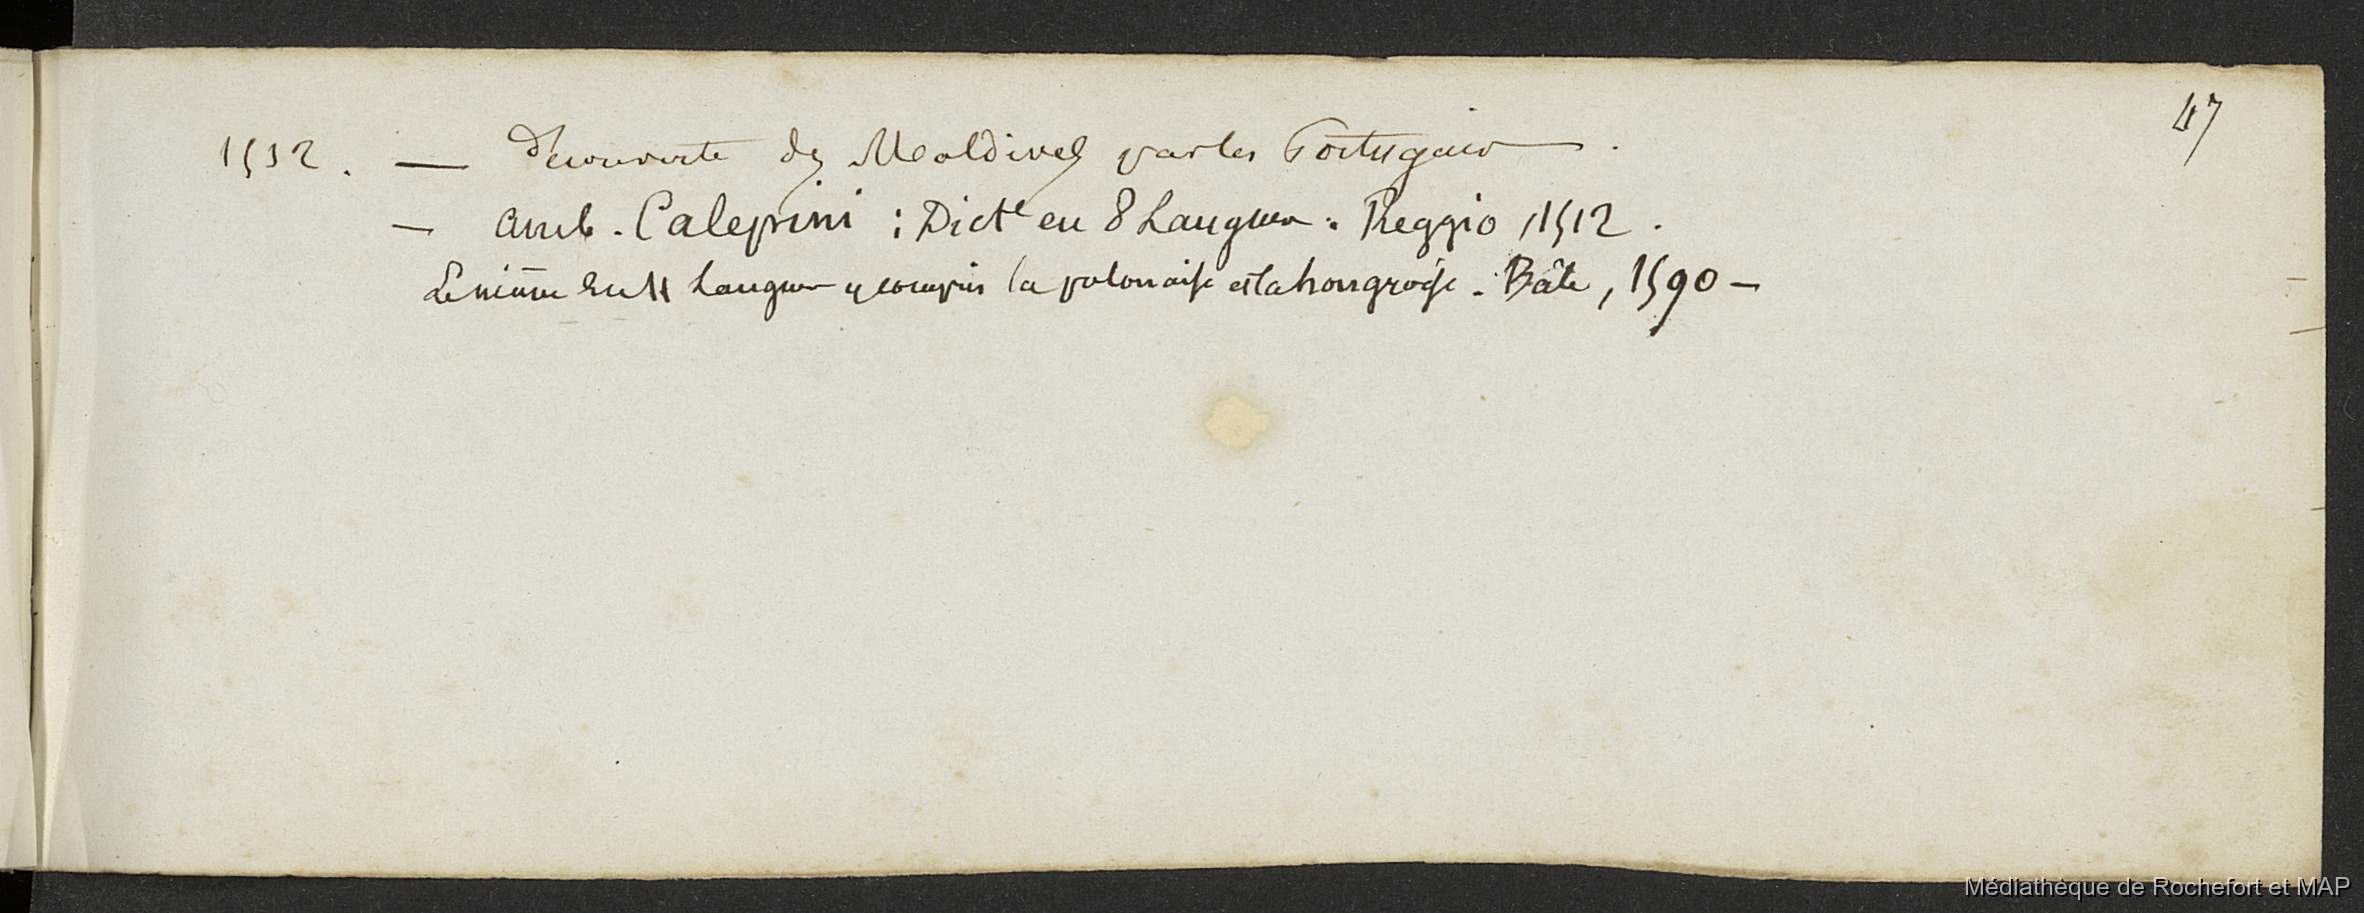 47
1512. — Découverte des Maldives par les Portugais.
— Amb. Caleprini : Dictre en 8 Langues. Reggio, 1512.
Le même en 11 Langues y compris la polonaise et la hongroise. Bâle, 1590 —
Médiathèque de Rochefort et MAP